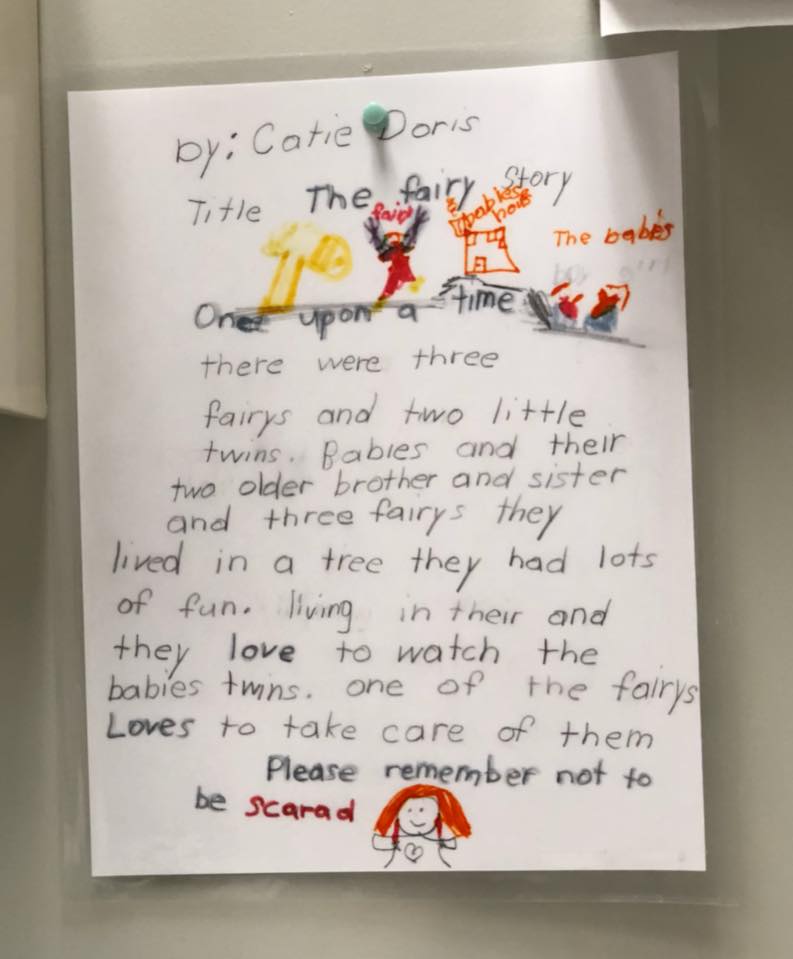 by: Catie Doris
Title The fairy Story
fairy
babies
The babies
One upon a time
there were three
fairys and two little
twins. Babies and their
two older brother and sister
and three fairys they
lived in a tree they had lots
of fun. living in their and
they love to watch the
babies twins. one of the fairys
Loves to take care of them
Please remember not to
be scarad